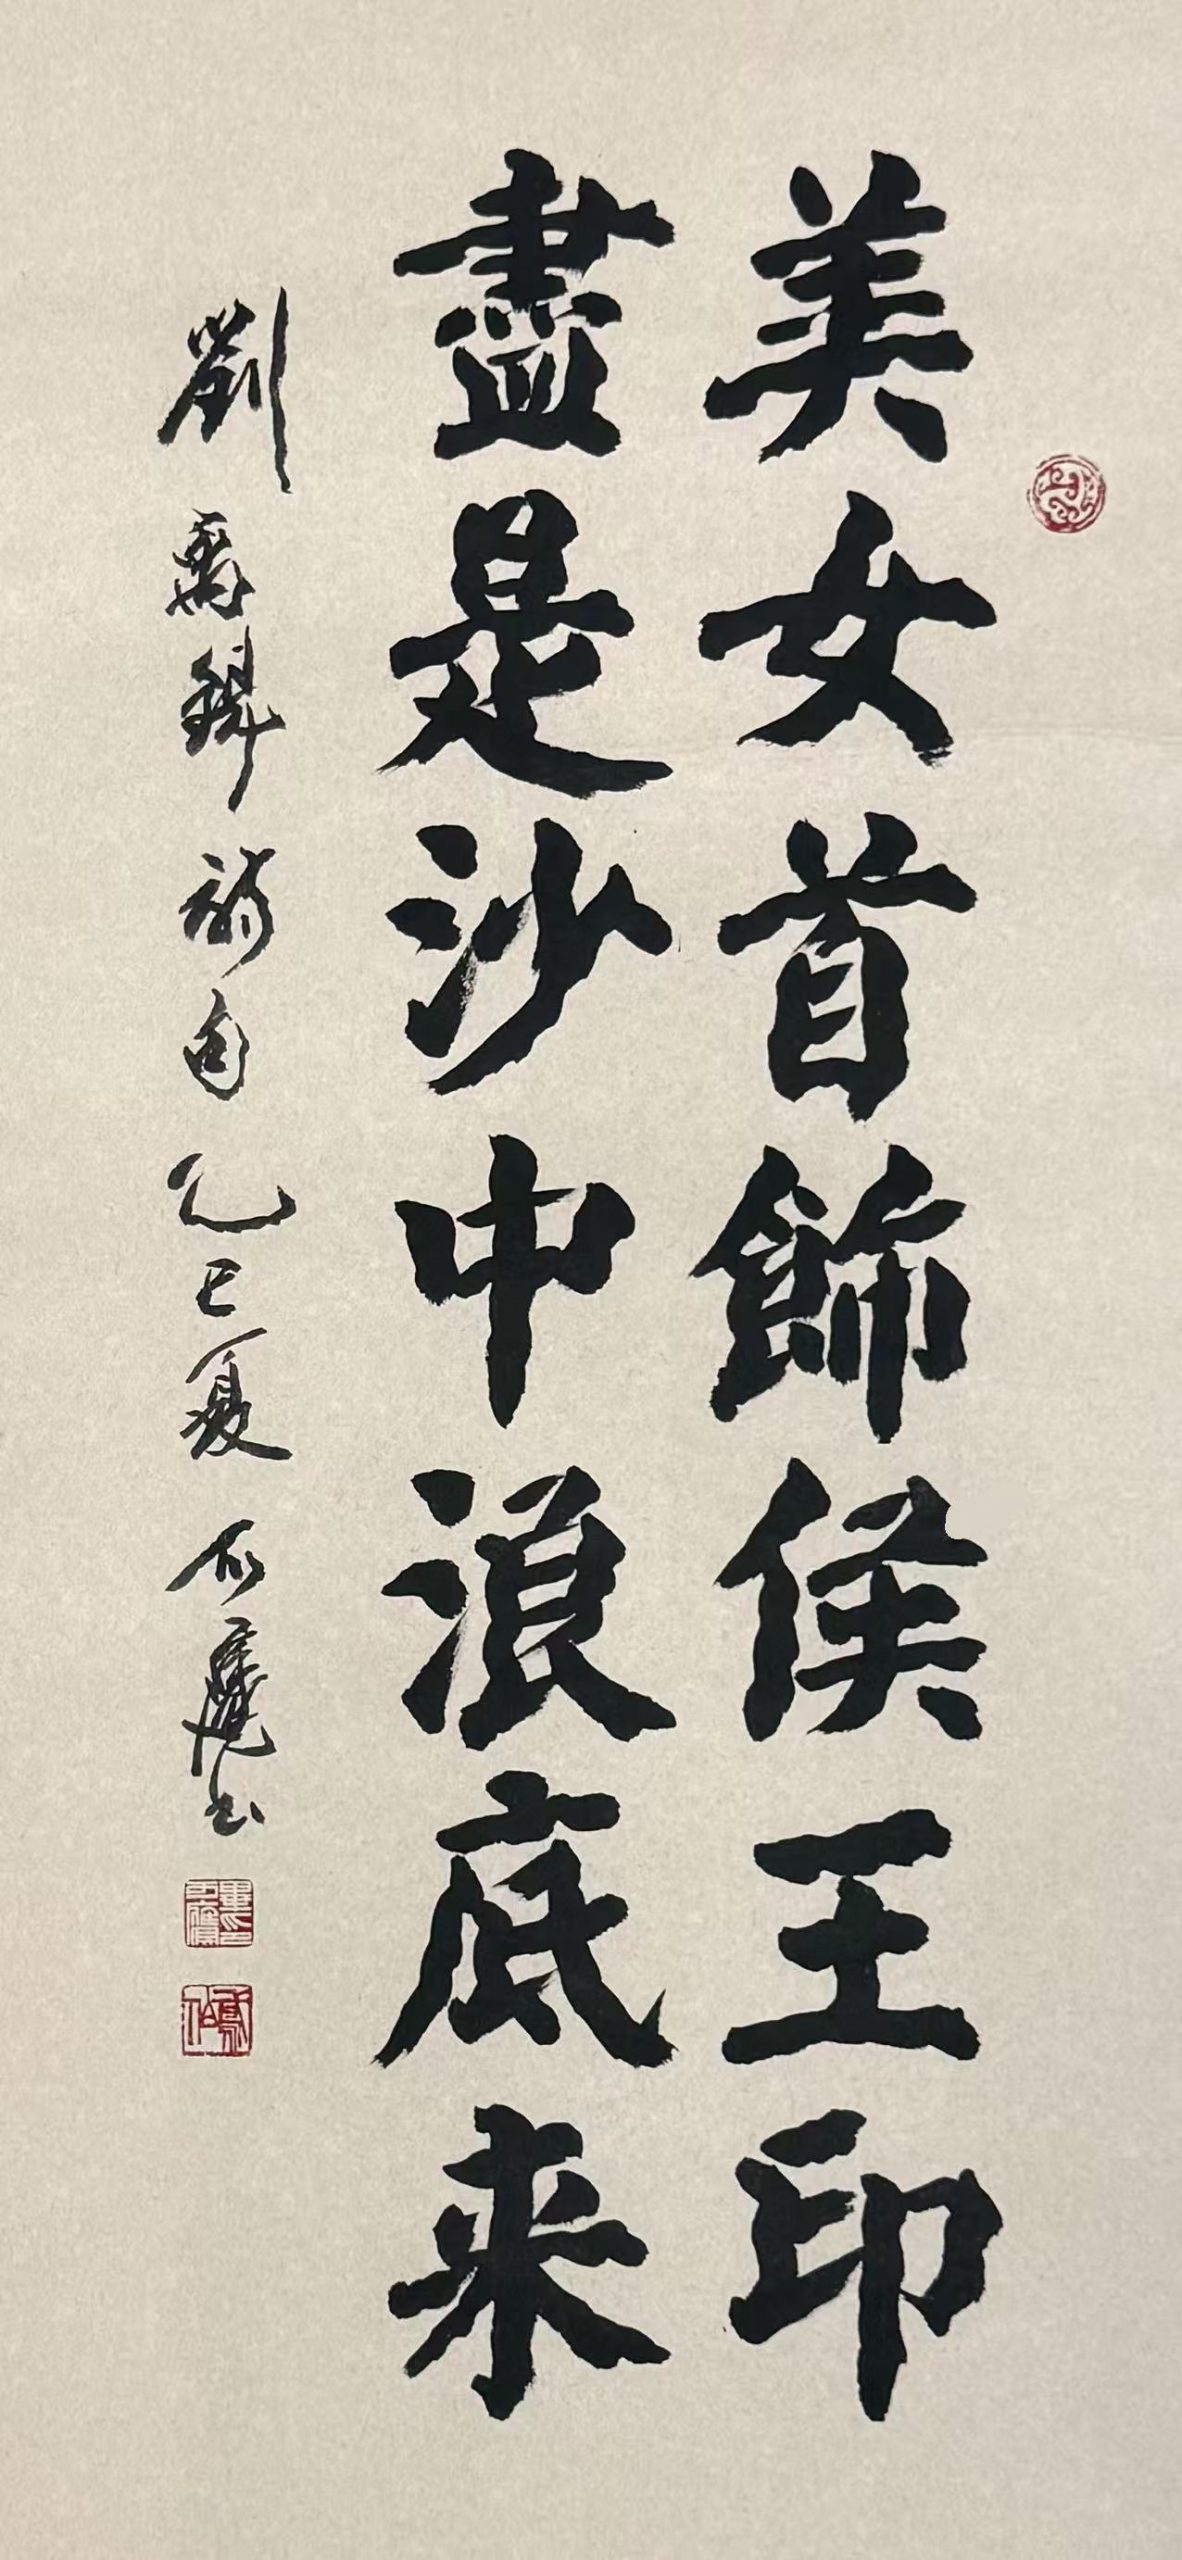 美女首飾侯王印
盡是沙中浪底来
劉禹錫詩句乙巳夏不騫书